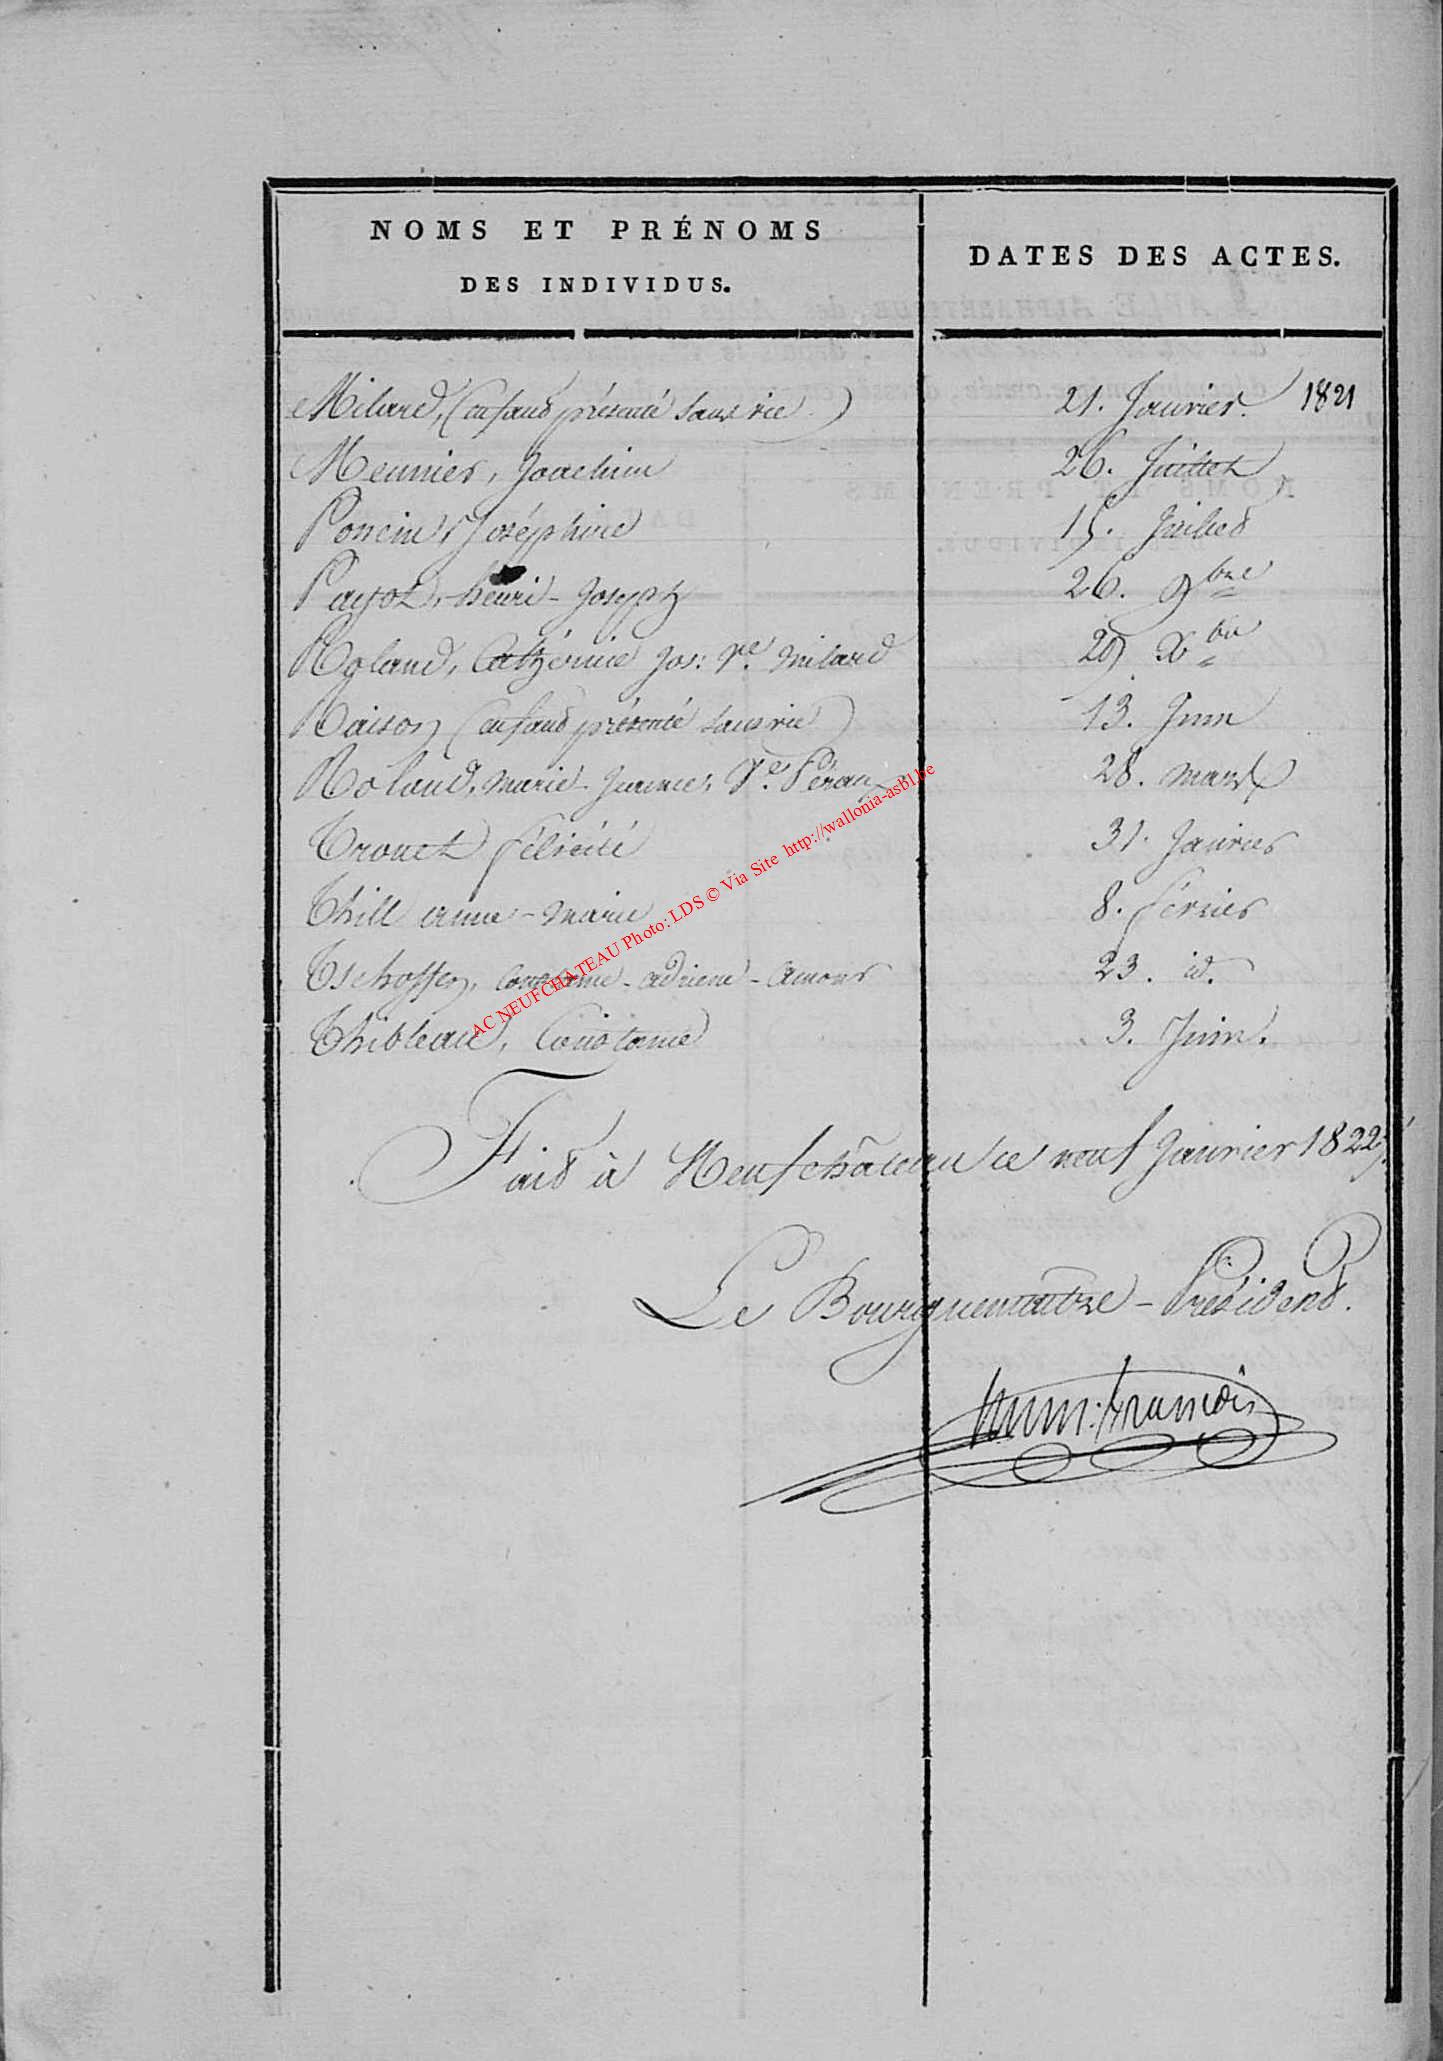 NOMS ET PRÉNOMS
DES INDIVIDUS.
DATES DES ACTES.
Milard, (enfant présenté sans vie) 21. Janvier. 1821
Meunier, Joachim 26. Juillet
Poncin, Joséphine 15. Juillet
Payot, henri-Joseph 26. 9bre
Roland, Catherine Jos: Ve. Milard 29 Xbre
Raison (enfant présenté sans vie) 13. Juin
Roland, Marie-Jeanne, Ve. 28. Mars
Trouet félicité 31. Janvier
Thill anne-Marie 8. février
Tschoffen, Constance-adriene-Amour 23. id.
Thibleau, Constance 3. Juin.
Fait à Neufchâteau ce neuf Janvier 1822.
Le Bourguemaitre-Président.
françois
AC NEUFCHATEAU Photo: LDS © Via Site http://wallonia-asbl.be